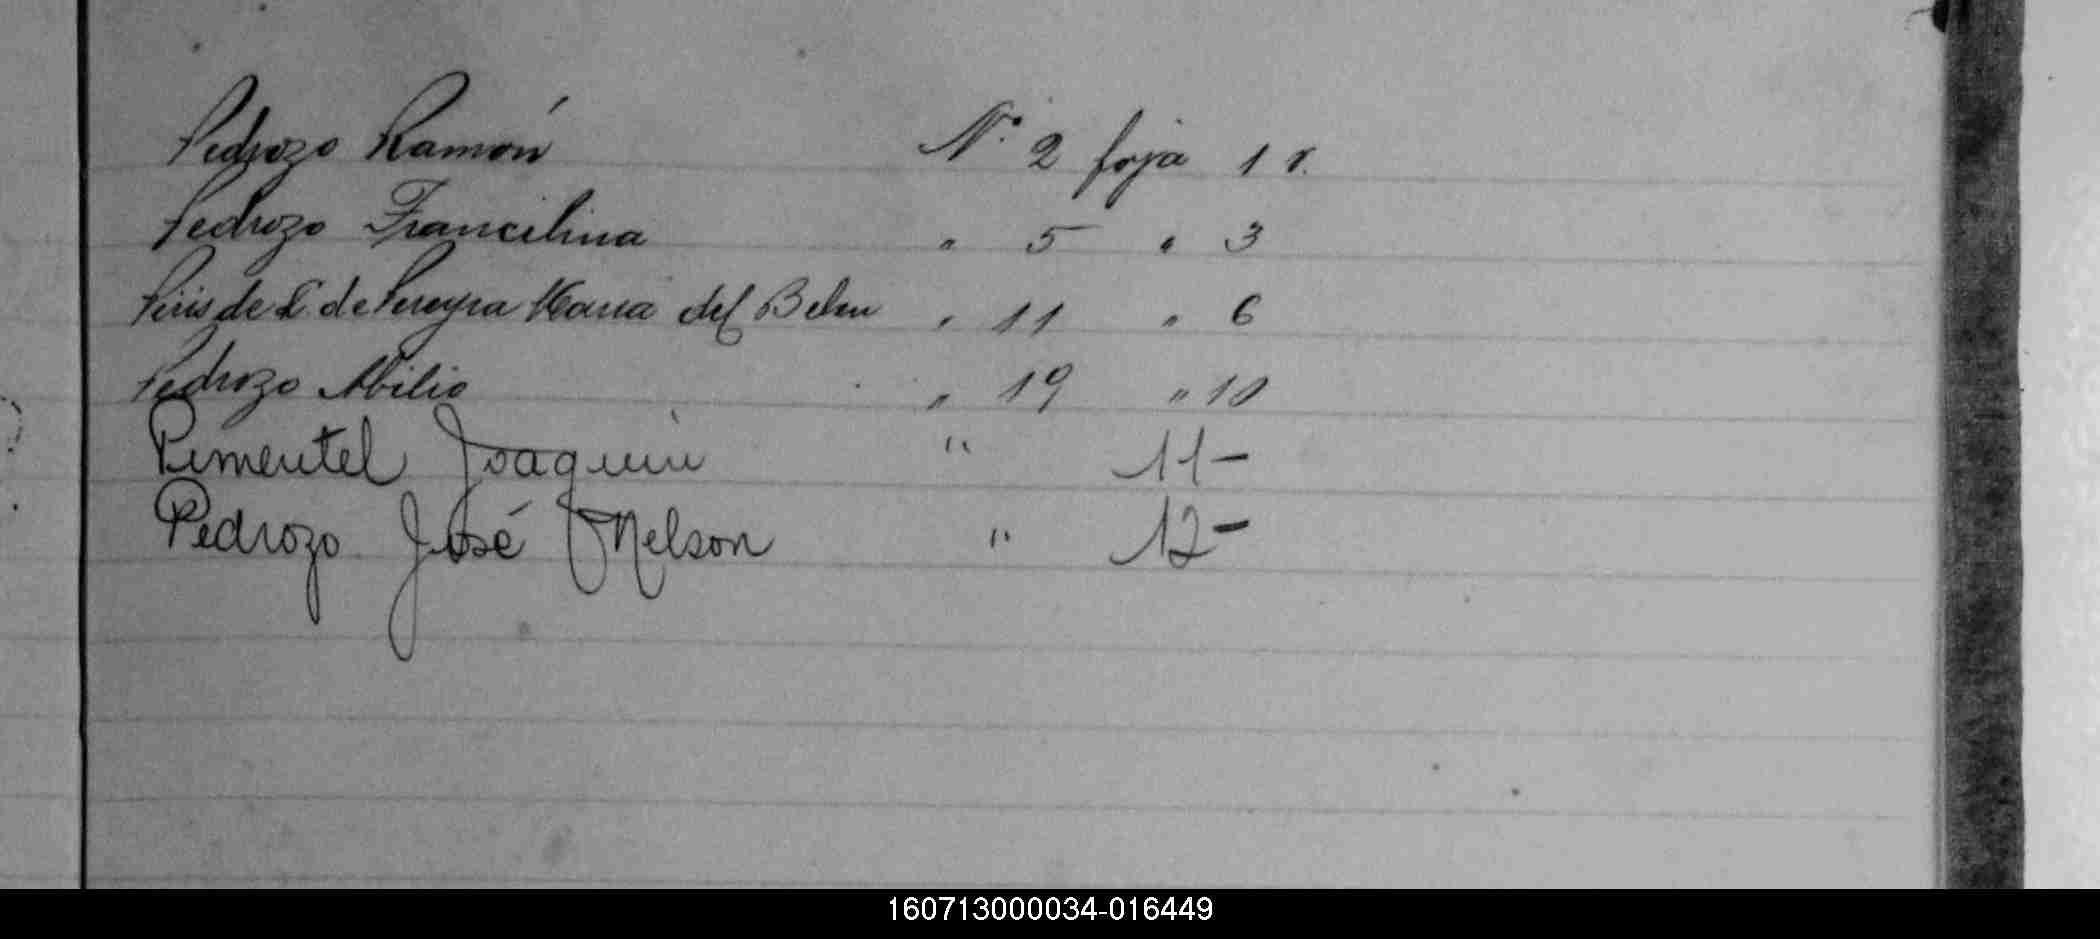 Pedrozo Ramón N.° 2 foja 1 v.
Pedrozo Francilina " 5 " 3
Piris de L. de Pereyra Maria del Belen " 11 " 6
Pedrozo Abilio " 19 " 10
Pimentel Joaquin " 11-
Pedrozo José Nelson " 12-
160713000034-016449